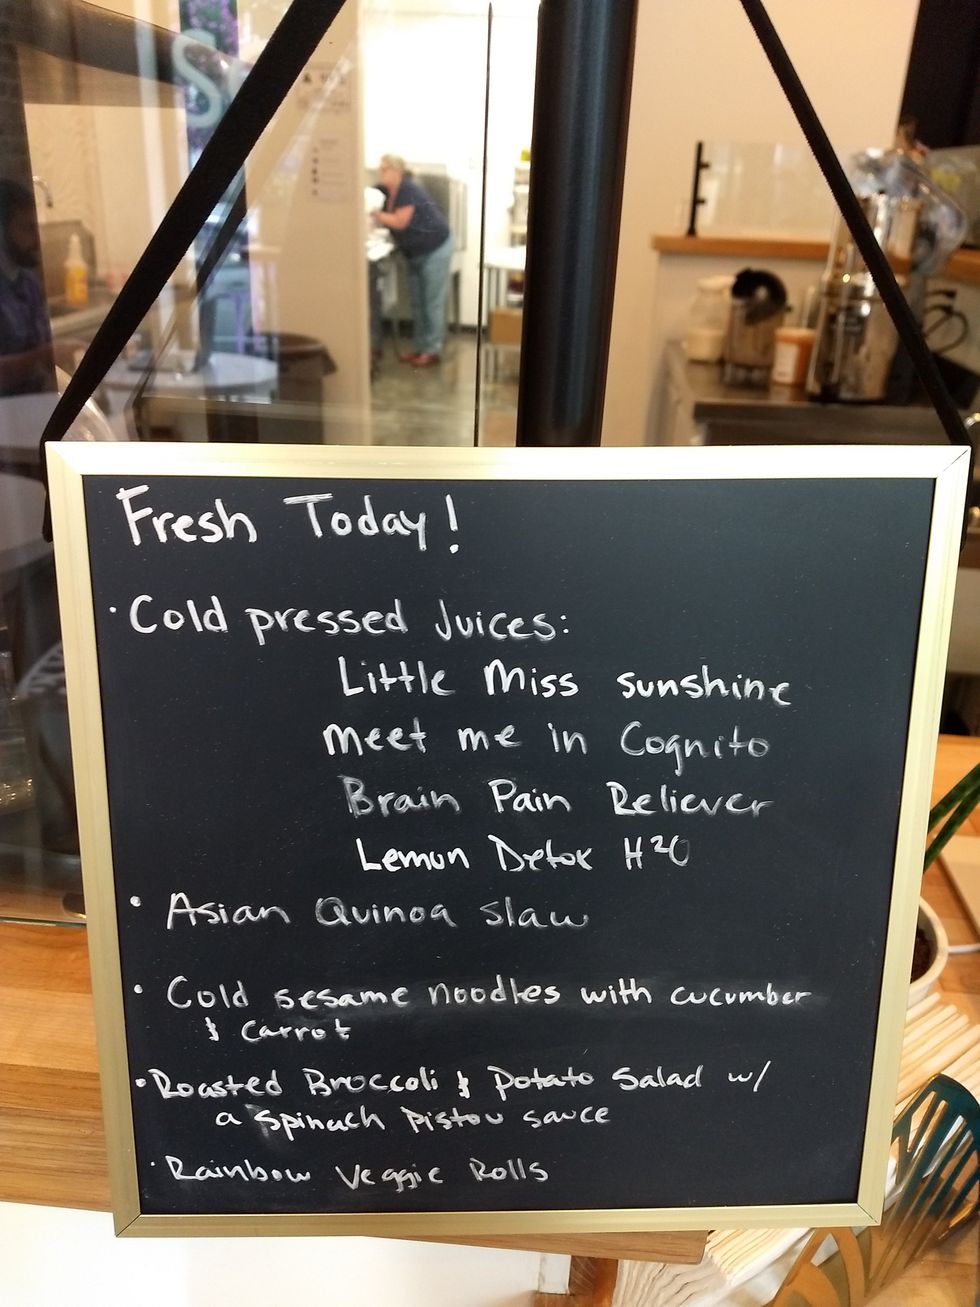 Fresh Today!
• Cold pressed Juices:
Little Miss sunshine
meet me in Cognito
Brain Pain Reliever
Lemon Detox H²O
• Asian Quinoa slaw
• Cold sesame noodles with cucumber
& carrot
• Roasted Broccoli & potato Salad w/
a spinach pistou sauce
• Rainbow Veggie Rolls